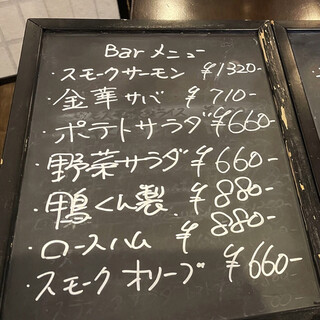 Bar メニュー
・スモークサーモン ¥1320-
・金華サバ ¥710-
・ポテトサラダ ¥660-
・野菜サラダ ¥660-
・鴨くん製 ¥880-
・ロースハム ¥880-
・スモークオリーブ ¥660-